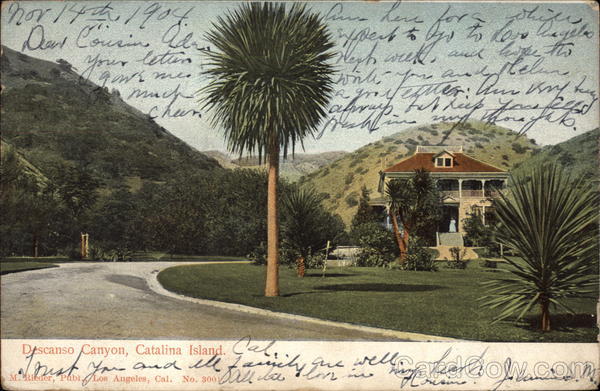 Nov 14th 1904
Dear Cousin
Your letter
gave me
much
cheer
Am here for a while
expect to go to Los Angeles
next week, and hope to
with you and Helen
a good letter. Am very busy
always but keep you all
fresh in my thoughts
Descanso Canyon, Catalina Island. Cal
M. Rieder, Publ., Los Angeles, Cal. No. 300
Trust you and all family are well.
love in
Cousin.
CardCow.com